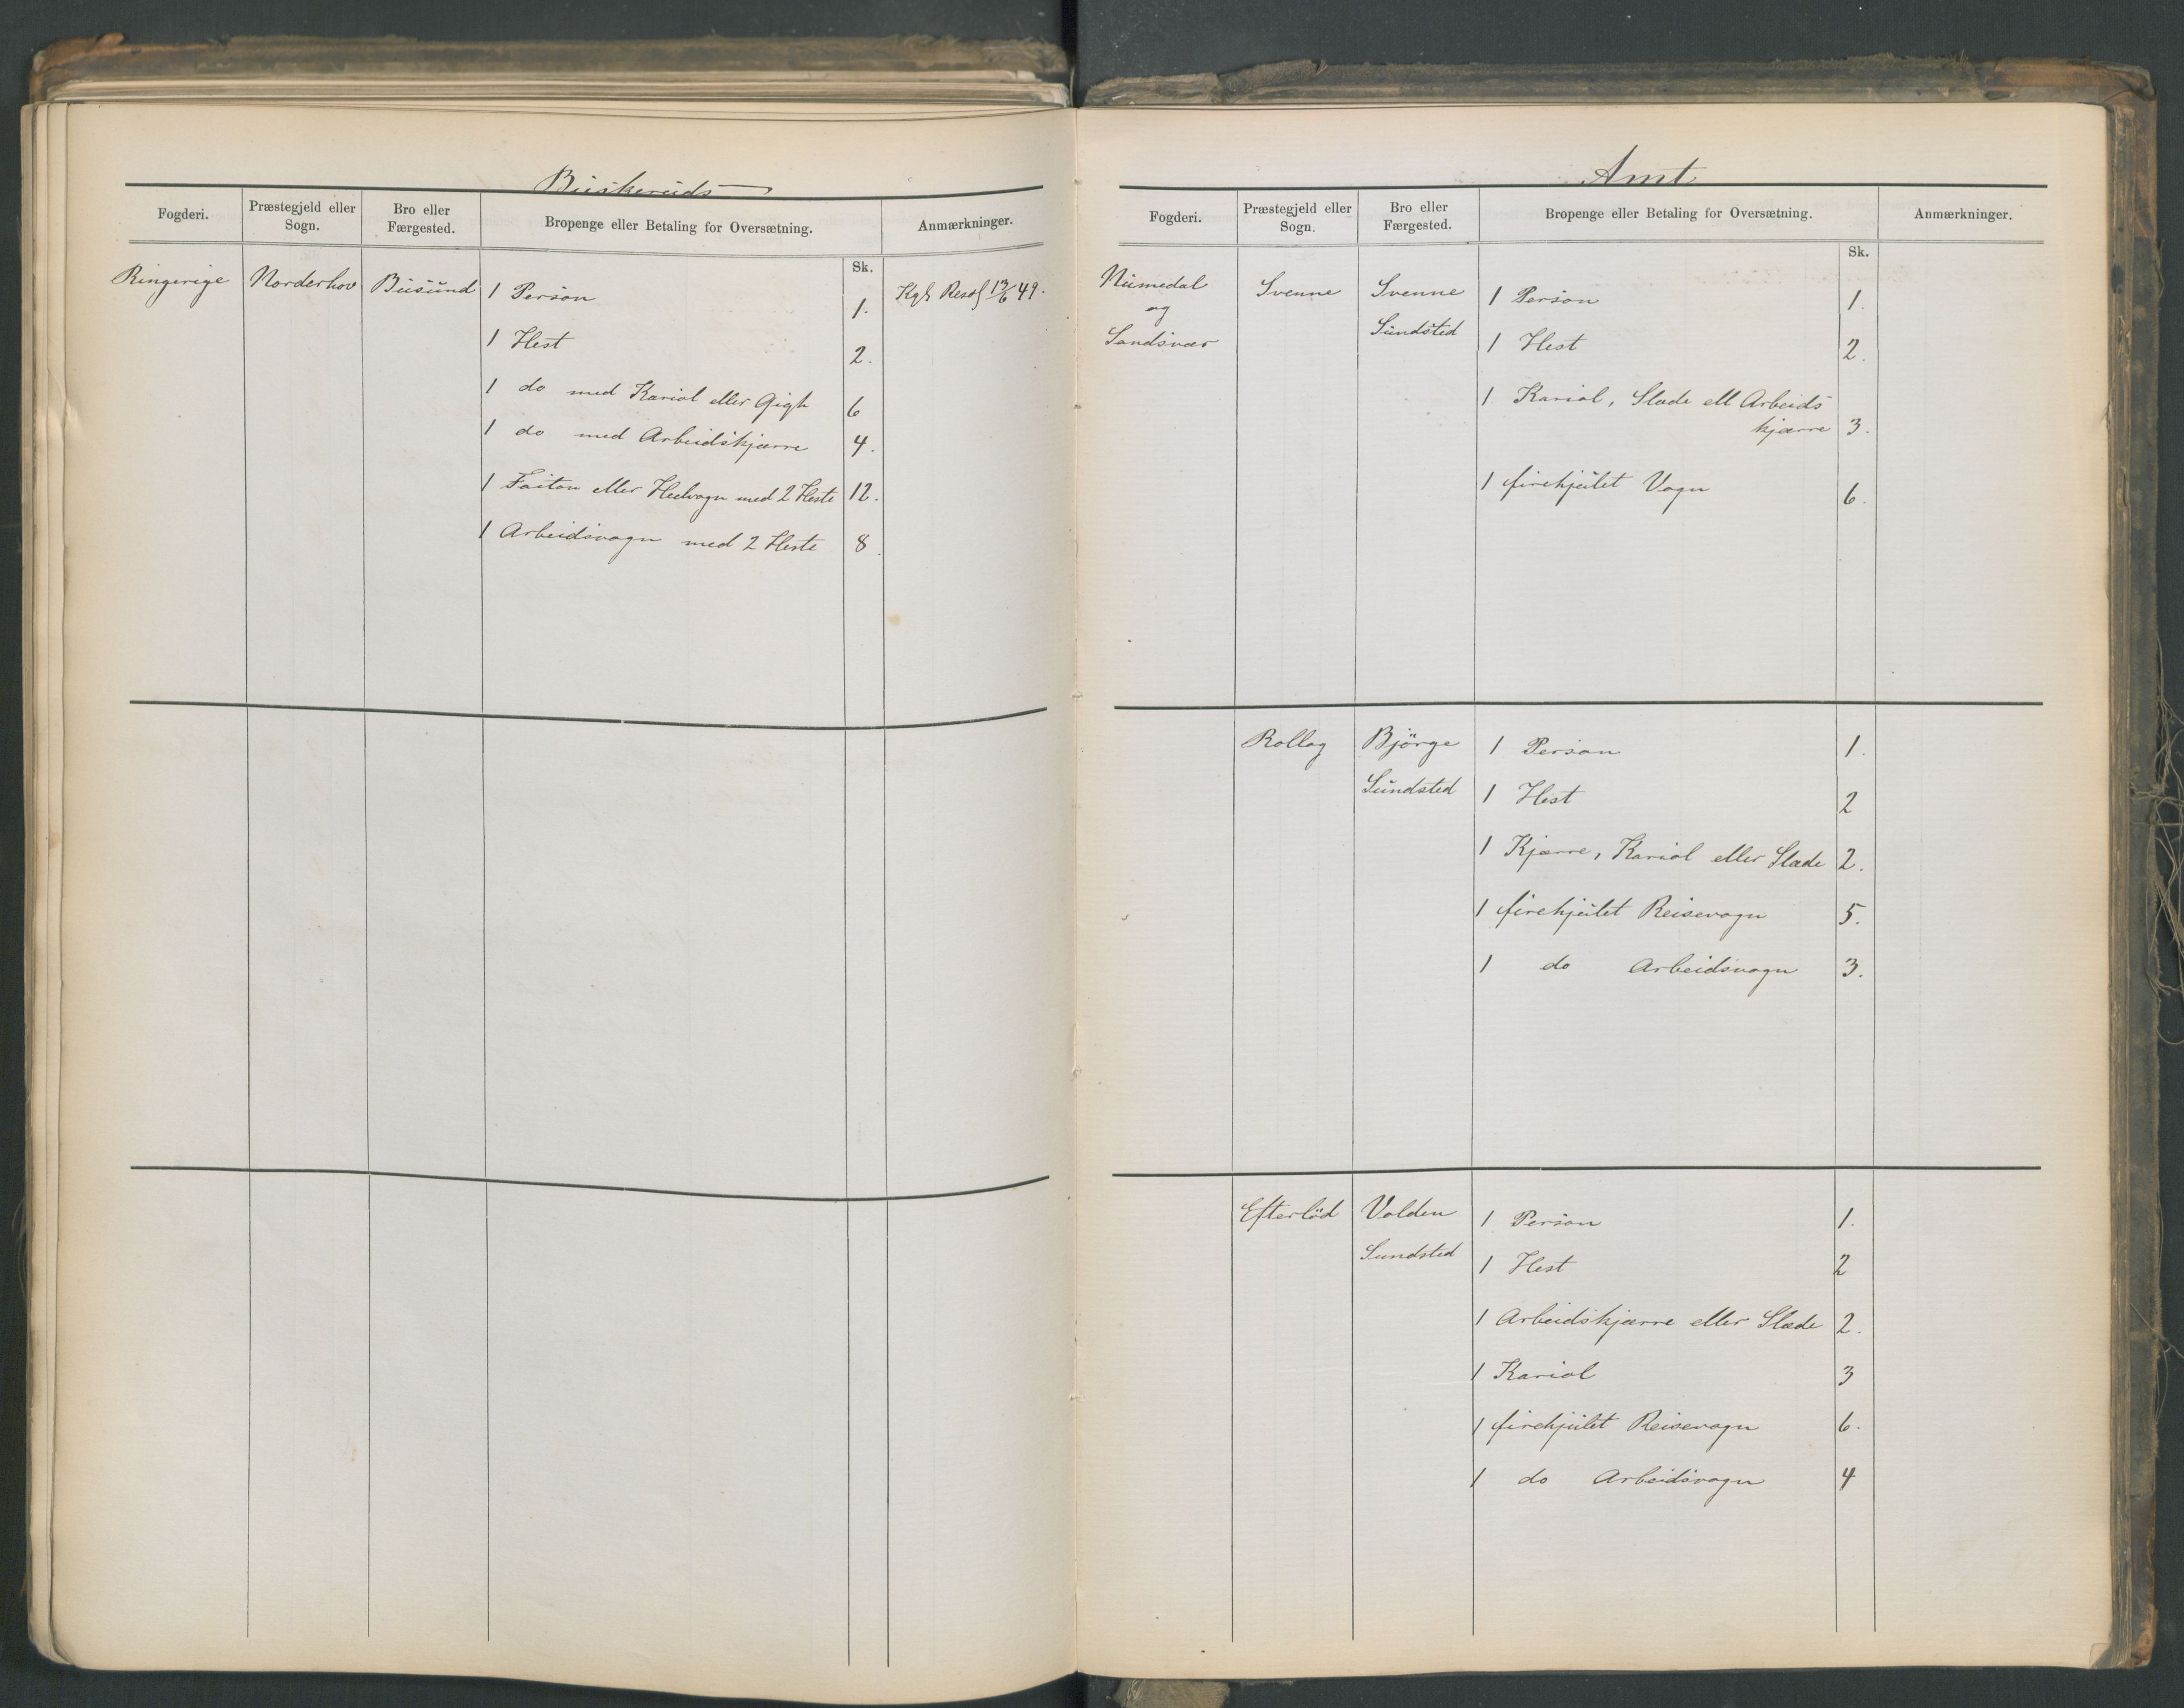 Buskeruds
Fogderi.
Præstegjeld eller
Sogn.
Bro eller
Færgested.
Bropenge eller Betaling for Oversætning.
Anmærkninger.
Sk.
Ringerige Norderhov Busund 1 Person 1. Kgl Resol 13/6 49.
1 Hest 2.
1 do med Kariol eller Gigh 6
1 do med Arbeidskjærre 4.
1 Faiton eller Heelvogn med 2 Heste 12.
1 Arbeidsvogn med 2 Heste 8.
Amt
Fogderi.
Præstegjeld eller
Sogn.
Bro eller
Færgested.
Bropenge eller Betaling for Oversætning.
Anmærkninger.
Sk.
Numedal Svenne Svenne 1 Person 1.
og
Sandsvær Sundsted 1 Hest 2.
1 Kariol, Slæde ell Arbeids
kjærre 3.
1 firehjulet Vogn 6.
Rollag Björge 1 Person 1.
Sundsted 1 Hest 2
1 Kjærre, Kariol eller Slæde 2.
1 firehjulet Reisevogn 5.
1 do Arbeidsvogn 3.
Efterlöd Volden 1 Person 1.
Sundsted 1 Hest 2
1 Arbeidskjærre eller Slæde 2.
1 Kariol 3
1 firehjulet Reisevogn 6.
1 do Arbeidsvogn 4